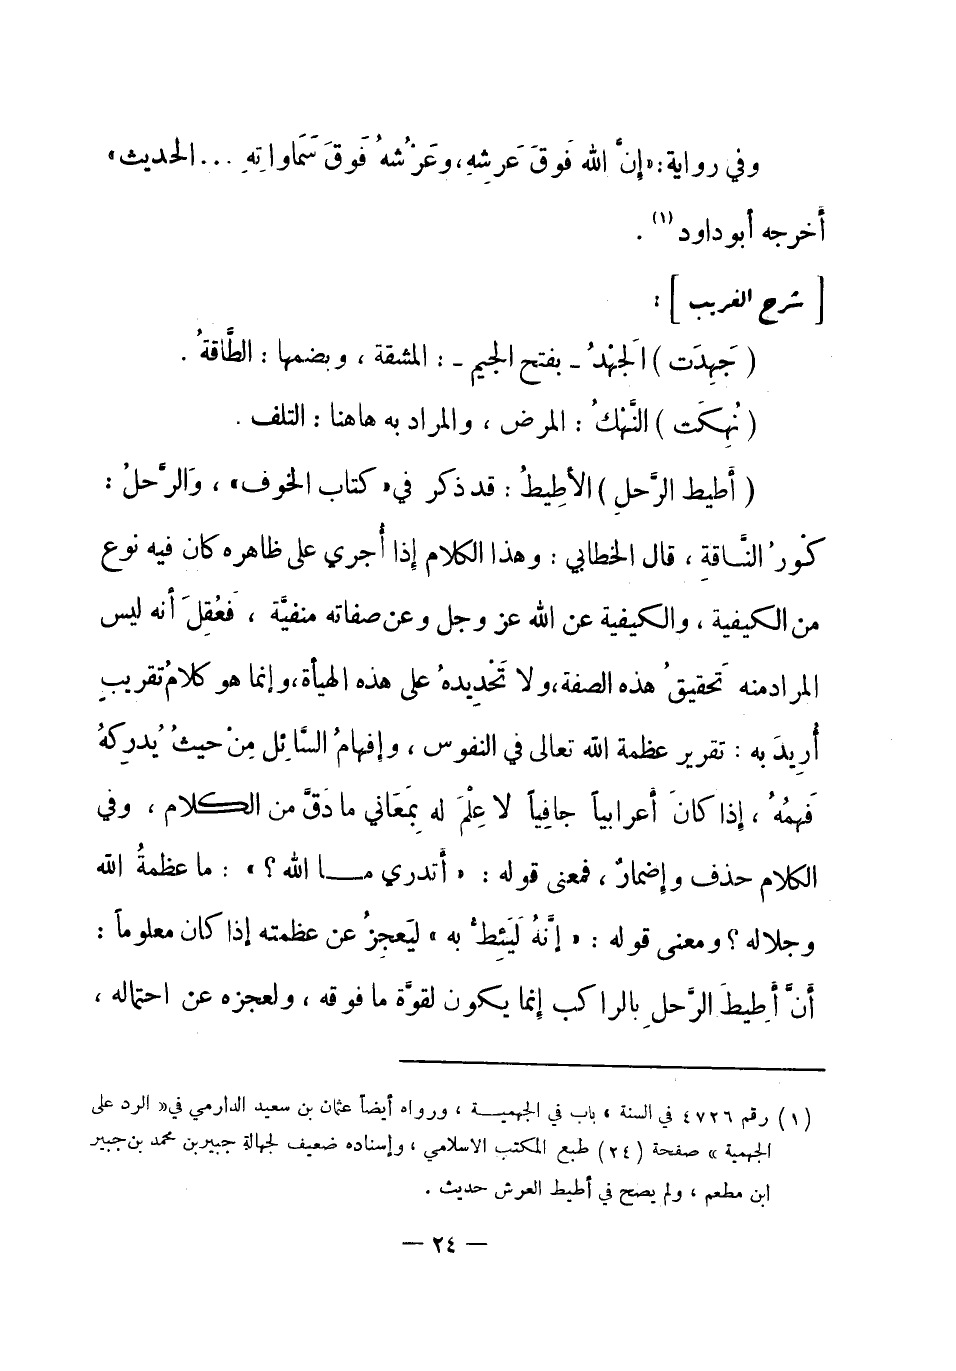 وفي رواية : « إنَّ الله فَوقَ عَرشِهِ ، وعَرْشُهُ فَوقَ سَمَاواتِهِ ... الحديث »
أخرجه أبو داود (١) .
[ شرح الغريب ] :
( جَهِدَت ) الَجَهْدُ - بفتح الجيم - : المشقة ، وبضمها : الطَّاقةُ .
( نُهِكَت ) النَّهْكُ : المرض ، والمراد به هاهنا : التلف .
( أطيط الرَّحلِ ) الأطِيطُ : قد ذكر في « كتاب الخوف » ، وَالرَّحلُ :
كَوْرُ النَّاقةِ ، قال الخطابي : وهذا الكلام إذا أُجري على ظاهره كان فيه نوع
من الكيفية ، والكيفية عن الله عز وجل وعن صفاته منفيَّة ، فَعُقِلَ أنه ليس
المراد منه تَحقيقُ هذه الصفة ، ولا تَحْدِيدهُ على هذه الهيأة ، وإنما هو كلامُ تقريبٍ
أُرِيدَ به : تقرير عظمة الله تعالى في النفوس ، وإفهامُ السَّائِلِ مِنْ حيثُ يُدرِكهُ
فَهمُهُ ، إذا كانَ أعرابياً جافِياً لا عِلْمَ له بِمَعَاني ما دَقَّ من الكلام ، وفي
الكلام حذف وإضمارٌ ، فمعنى قوله : « أتدري ما الله ؟ » : ما عظمةُ الله
وجلاله ؟ ومعنى قوله : « إنَّهُ لَيَئِطُّ به » ليَعجِزُ عن عظمته إذا كان معلوماً :
أنَّ أَطِيطَ الرَّحلِ بالراكب إنما يكون لقوَّة ما فوقه ، ولعجزه عن احتماله ،
(١) رقم ٤٧٢٦ في السنة ، باب في الجهمية ، ورواه أيضاً عثمان بن سعيد الدارمي في « الرد على
الجهمية » صفحة (٢٤) طبع المكتب الاسلامي ، وإسناده ضعيف لجهالة جبير بن محمد بن جبير
ابن مطعم ، ولم يصح في أطيط العرش حديث .
— ٢٤ —